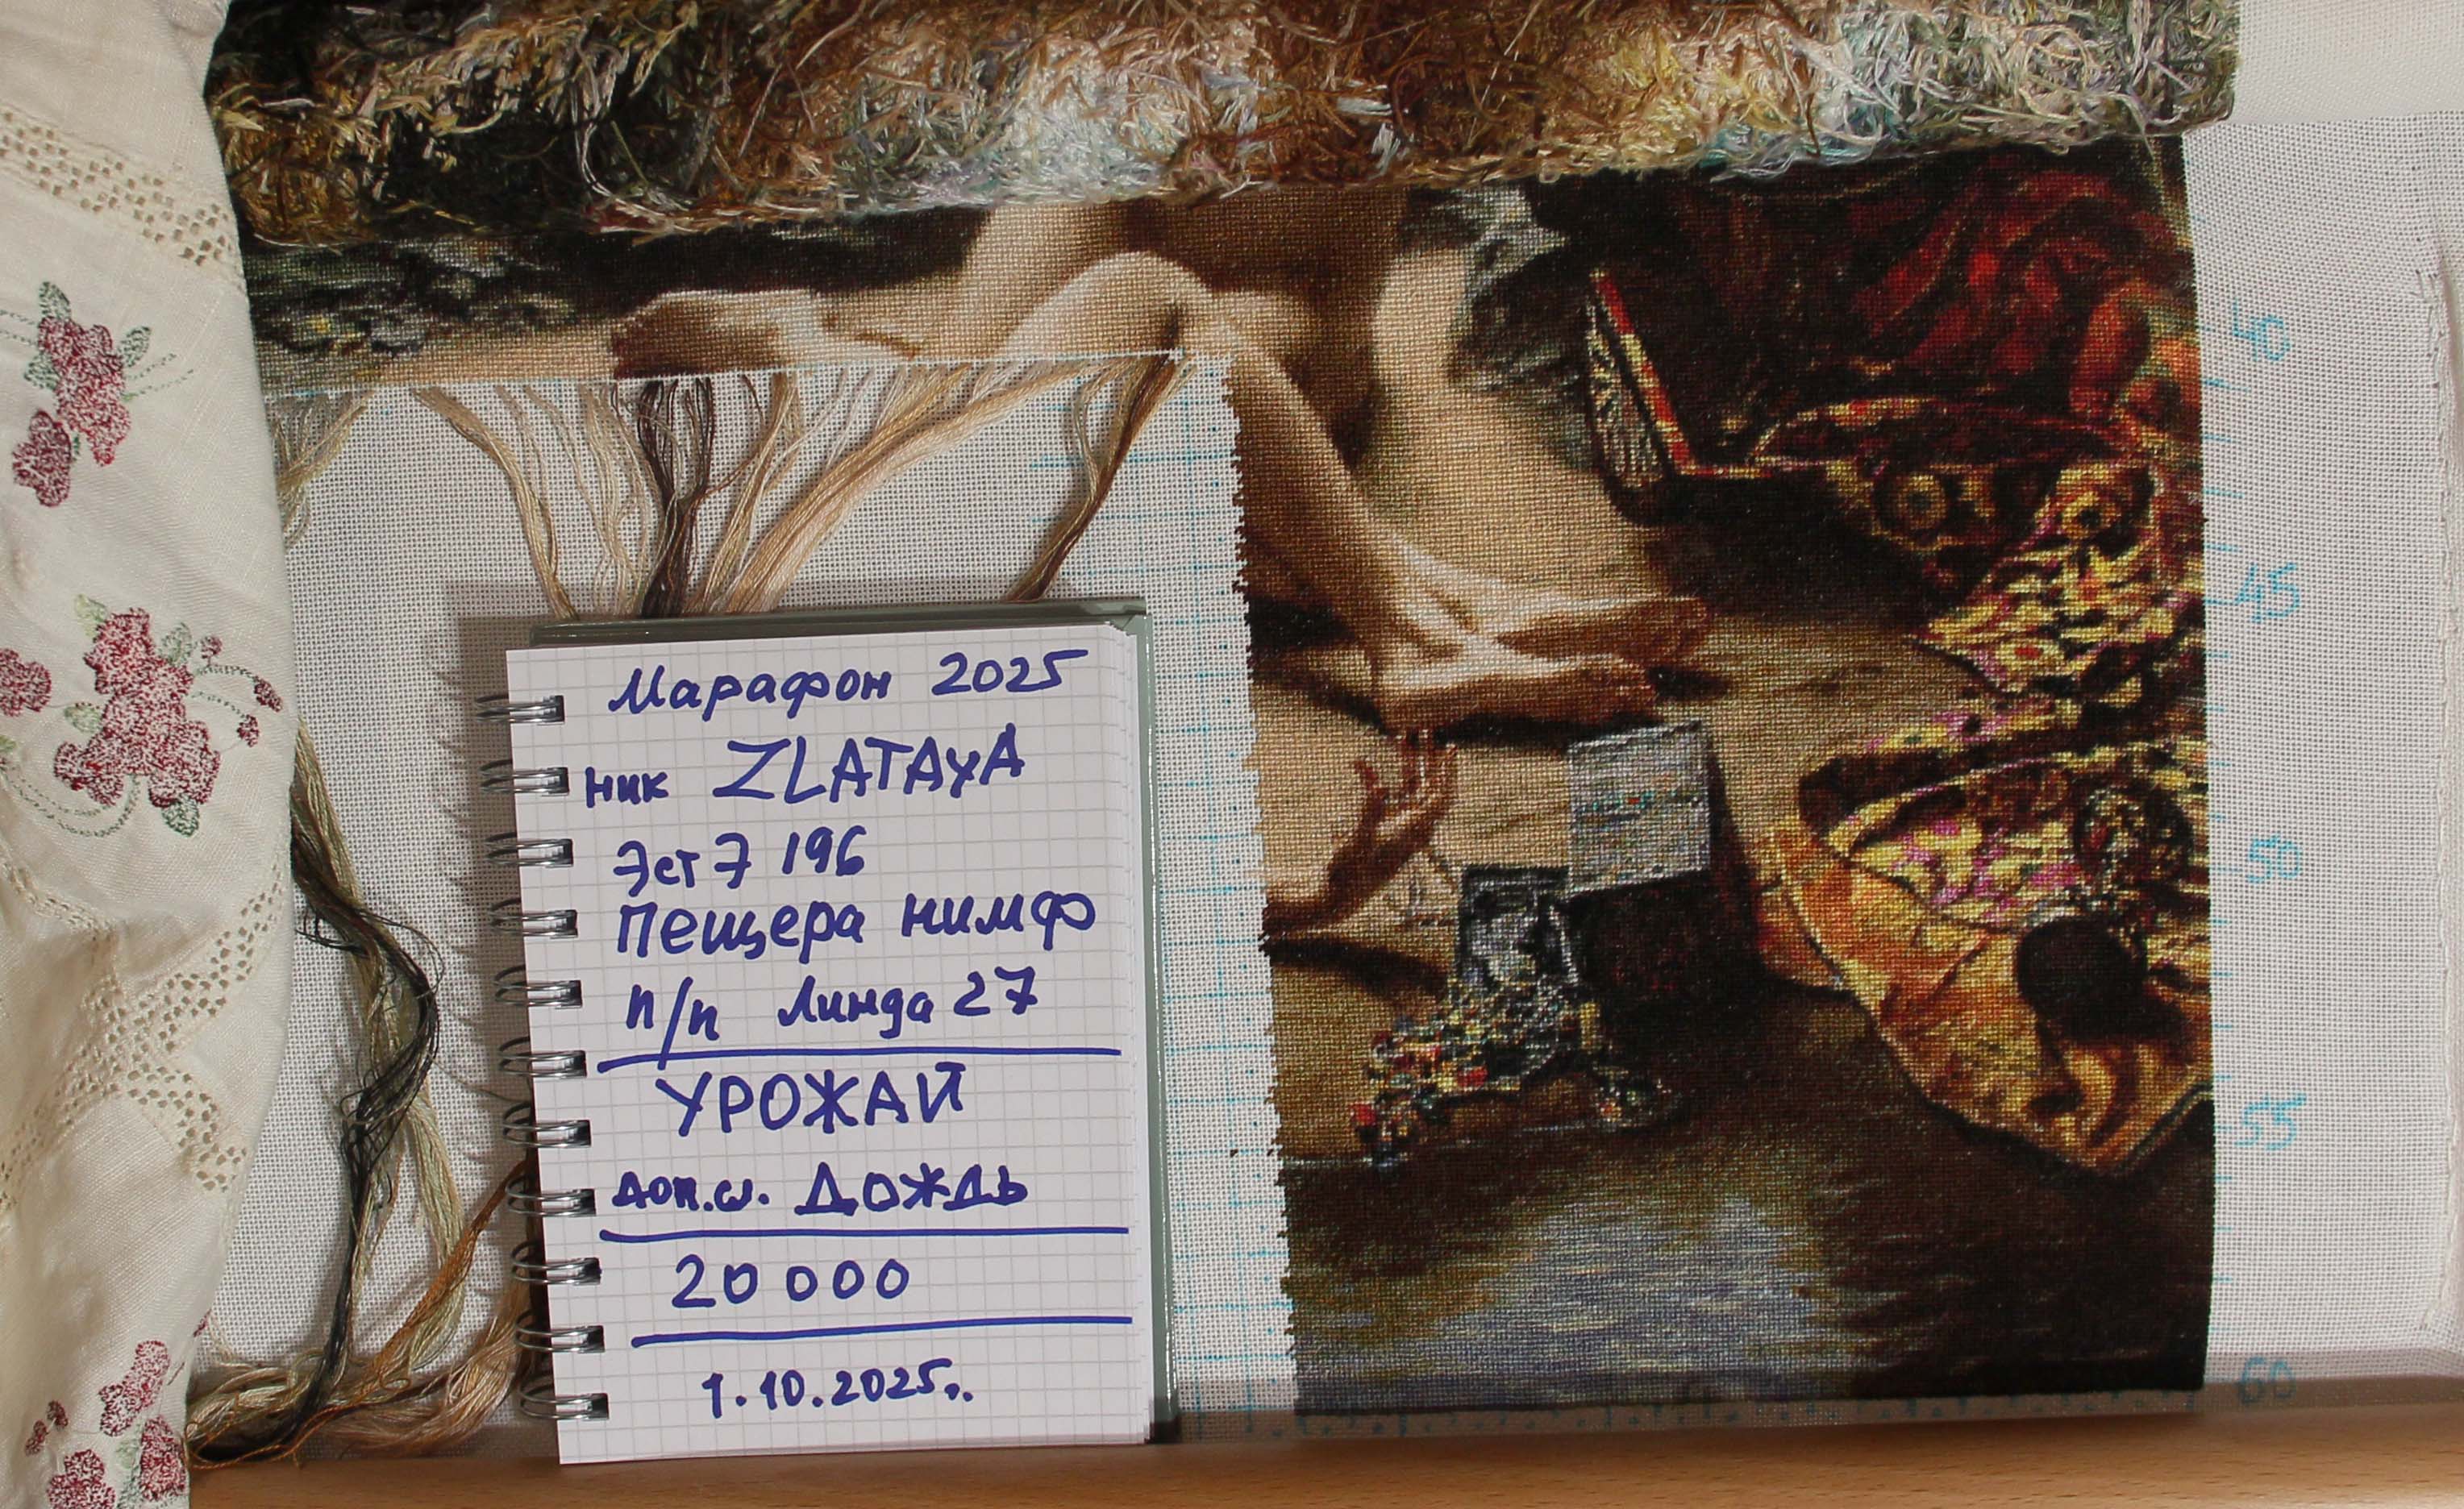 Марафон 2025
ник ZLATAYA
ЭстЭ 196
Пещера нимф
п/п Линда 27
УРОЖАЙ
доп.ш. ДОЖДЬ
20 000
1.10.2025г.
40
45
50
55
60